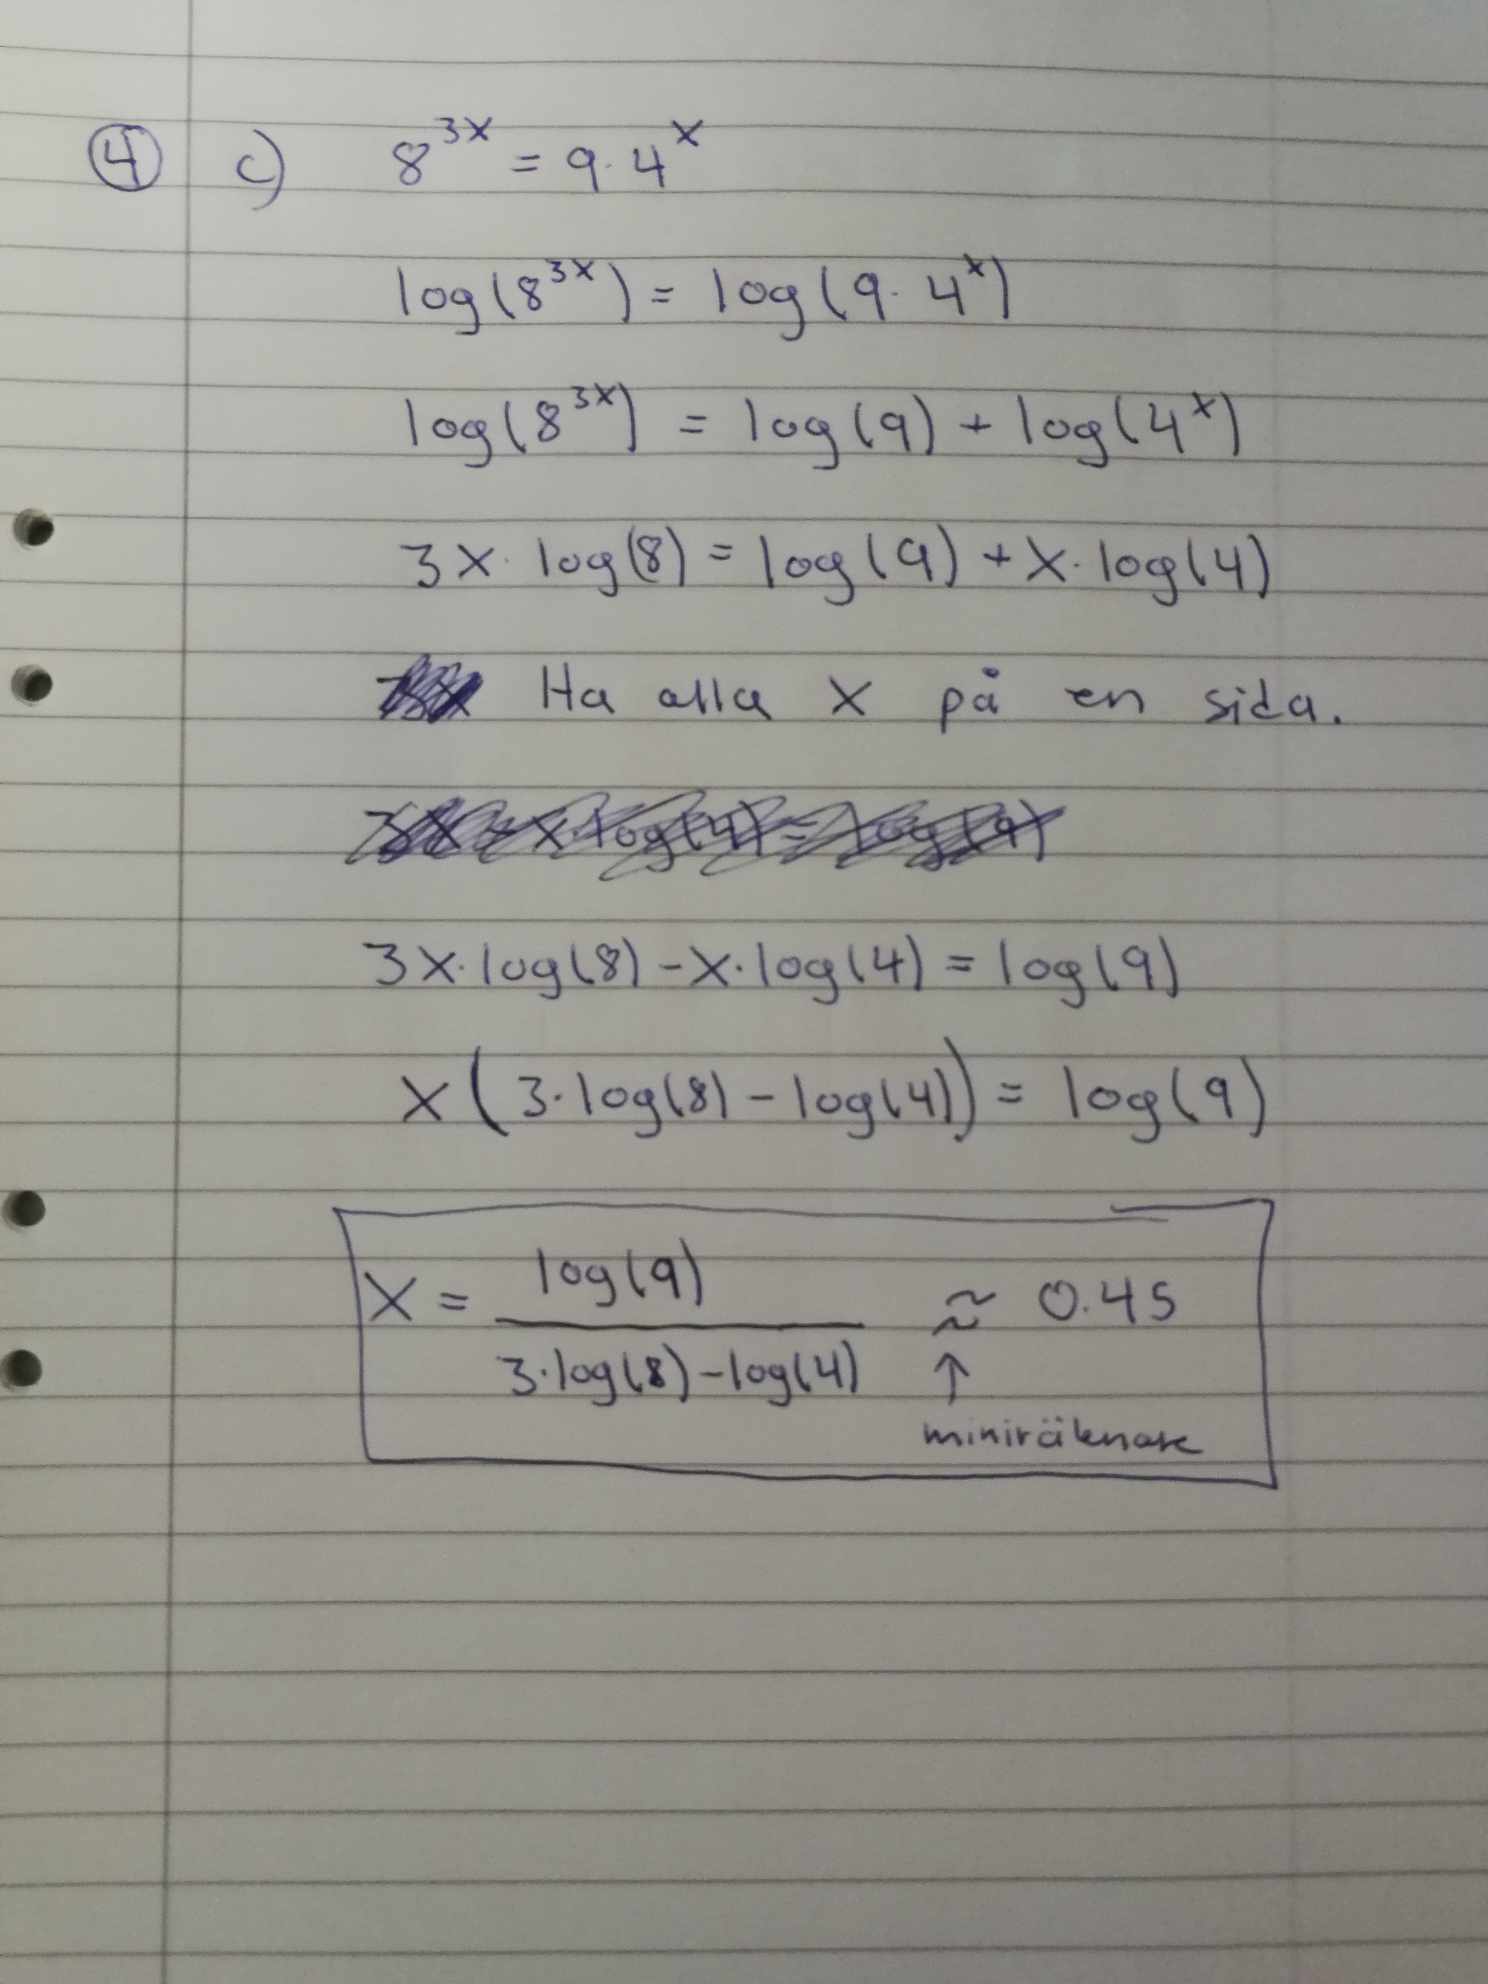 4 c) 8^3x = 9·4^x
log(8^3x) = log(9·4^x)
log(8^3x) = log(9) + log(4^x)
3x·log(8) = log(9) + x·log(4)
Ha alla x på en sida.
3x·log(8) - x·log(4) = log(9)
x(3·log(8) - log(4)) = log(9)
x = log(9) / 3·log(8) - log(4) ≈ 0.45
↑
miniräknare